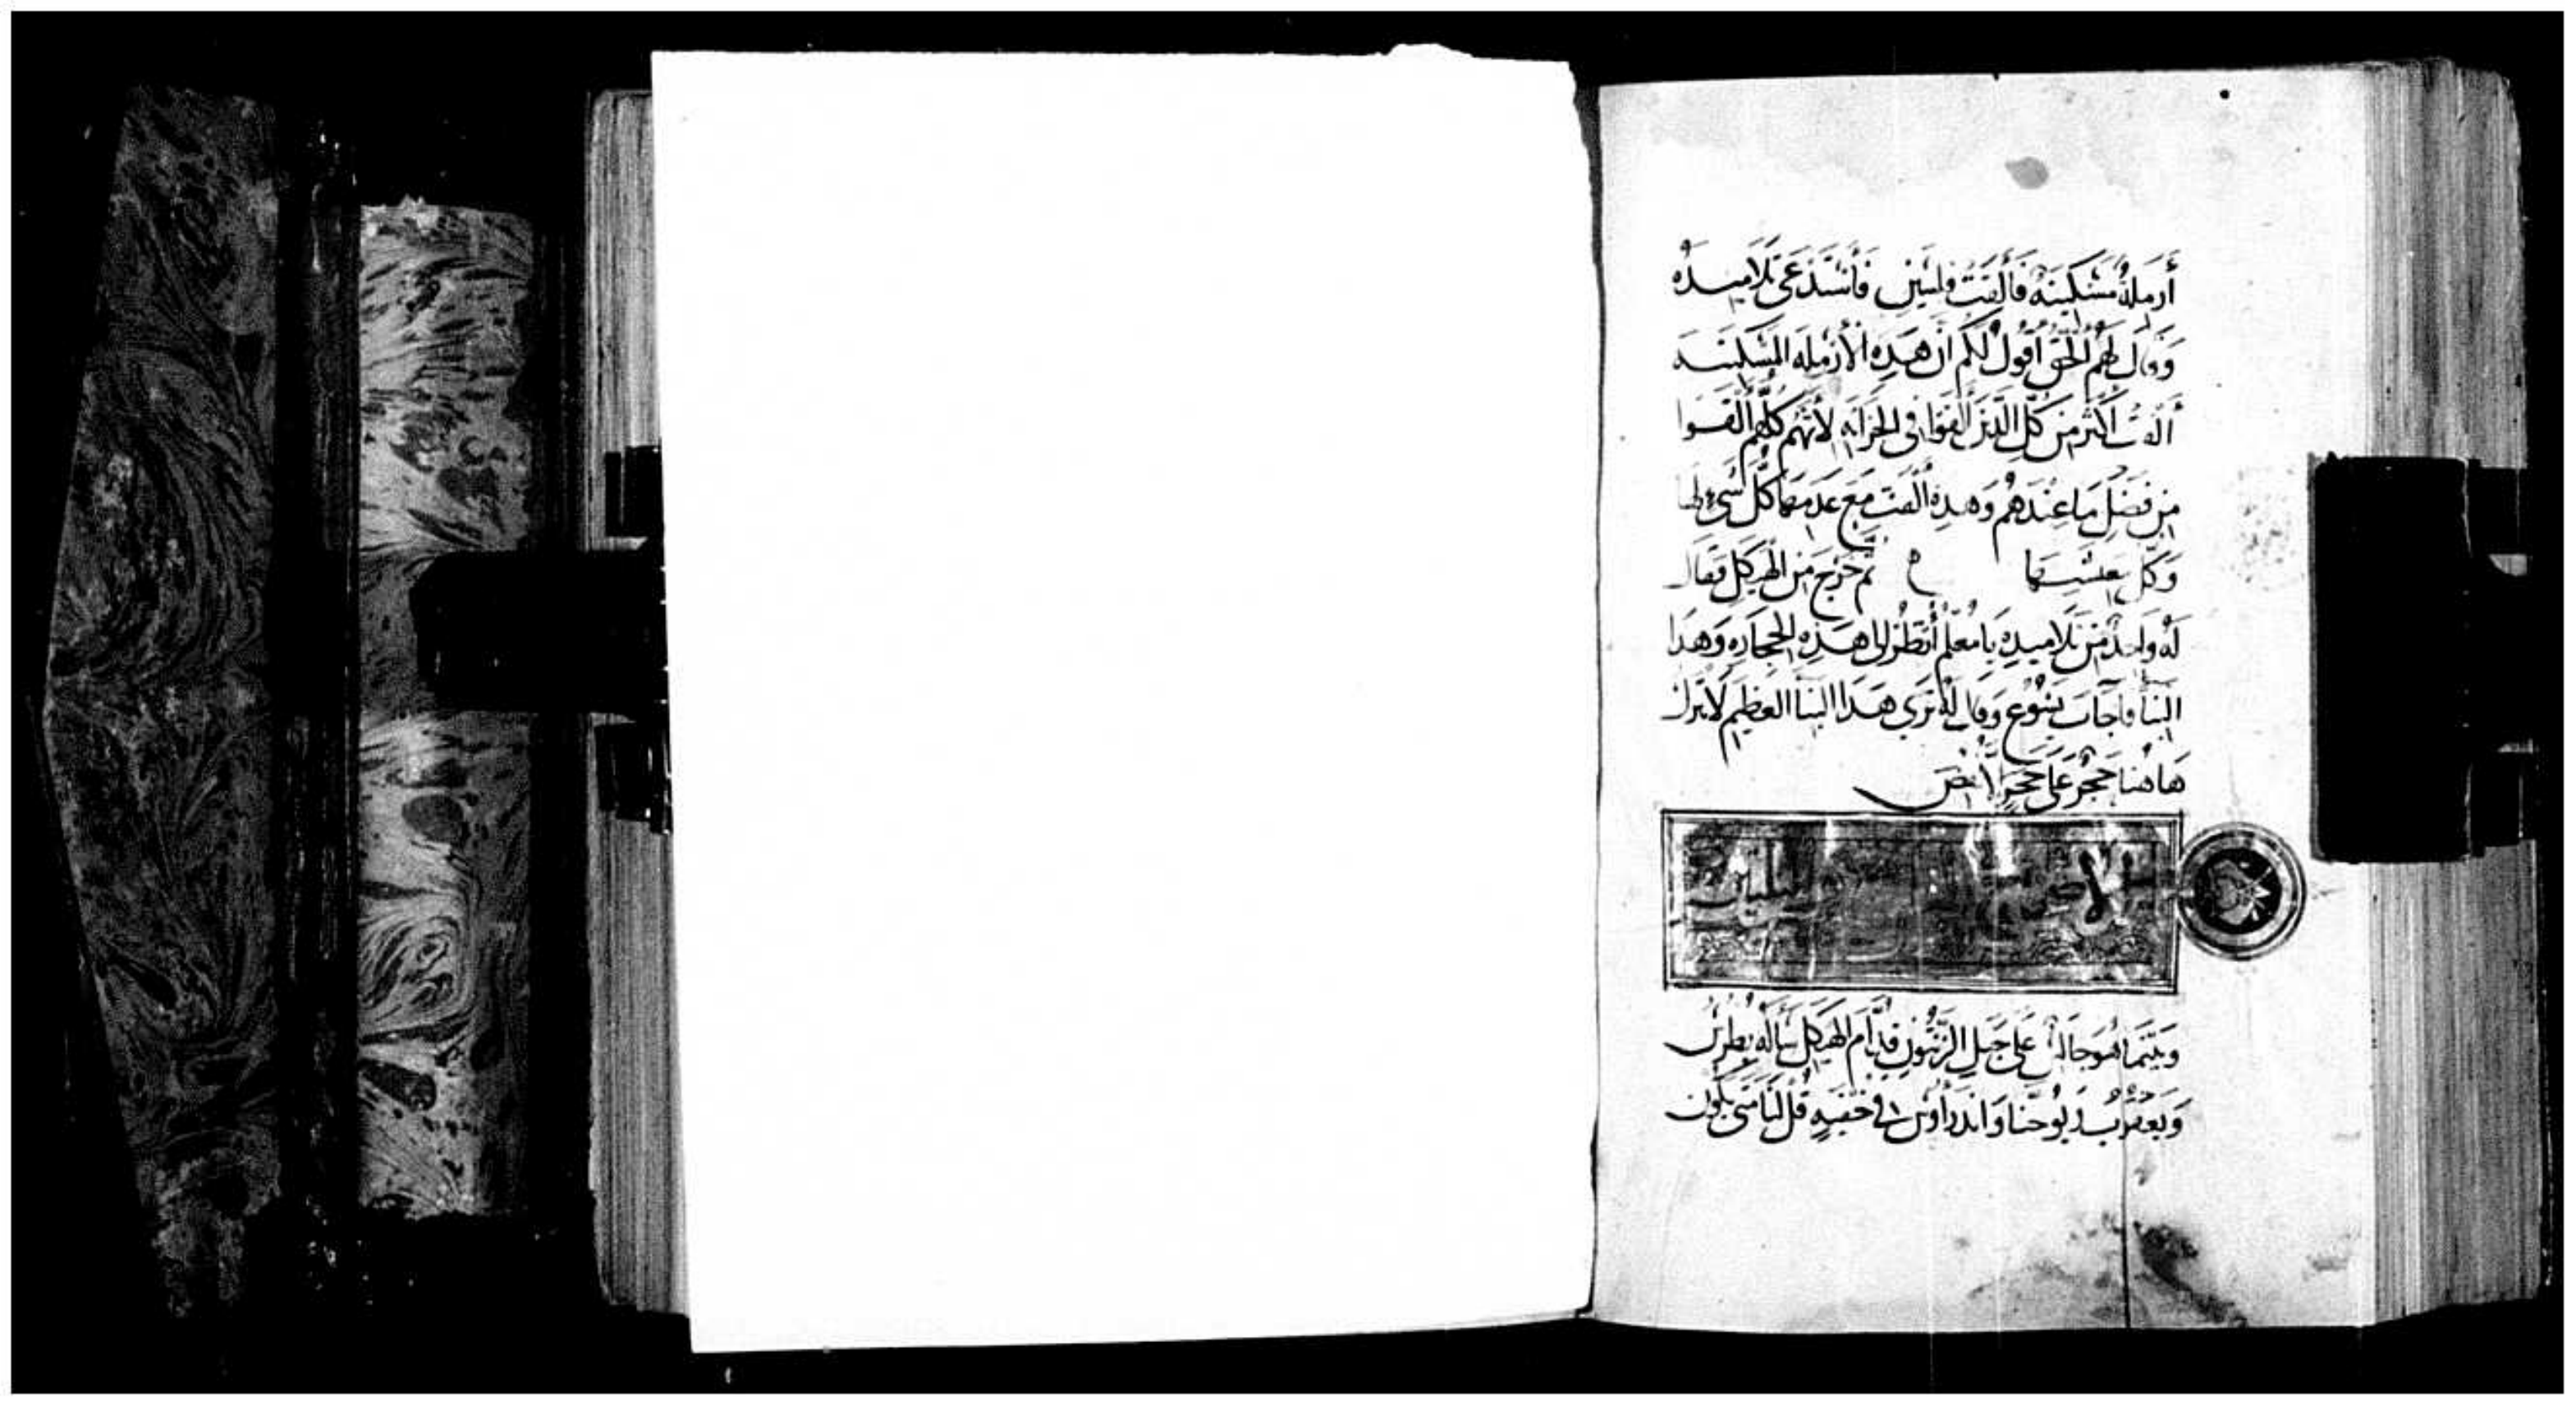 أَرملةٌ مسْكينَةٌ فَألقَتْ فلسَين فَأستَدعَى تَلاميـده
وَقال لهُم الحَقَّ أقولُ لكُم ان هَـدِه الأرْمَلَه المِسْكينـه
ألقت اكثر من كلِّ الَّدينَ ألقَوا في الخزانه لأنَّهُم كلّهُم ألقَـوا
مِن فَضَلِ مَا عِنْدَهُم وَهـدِه ألقت مَعَ عَدمَهَا كلَّ شَىء لها
وَكلّ معيشتـها ثم خرَج مِن الهَيكلِ فَقال
لَهُ وَاحدٌ مِن تَلاميدِه يَا معَلّم أنظُر الى هَـدِه الحجَارَه وَهـدا
البنَا فأجَاب يسُوع وَقال لهُ تَرَى هَـدا البنَا العَظيم لا يترك
هَاهُنا حَجرٌ عَلَى حَجَرٍ
وبَيْنَما هُوَ جَالسٌ عَلَى جَبلِ الزَّيتونِ قُدَّامَ الهَيكلِ سَألَهُ بطرس
وَيَعقوبُ وَيُوحَنا وَاندَراوس في خفيَهٍ قُل لَنا مَتى يكون